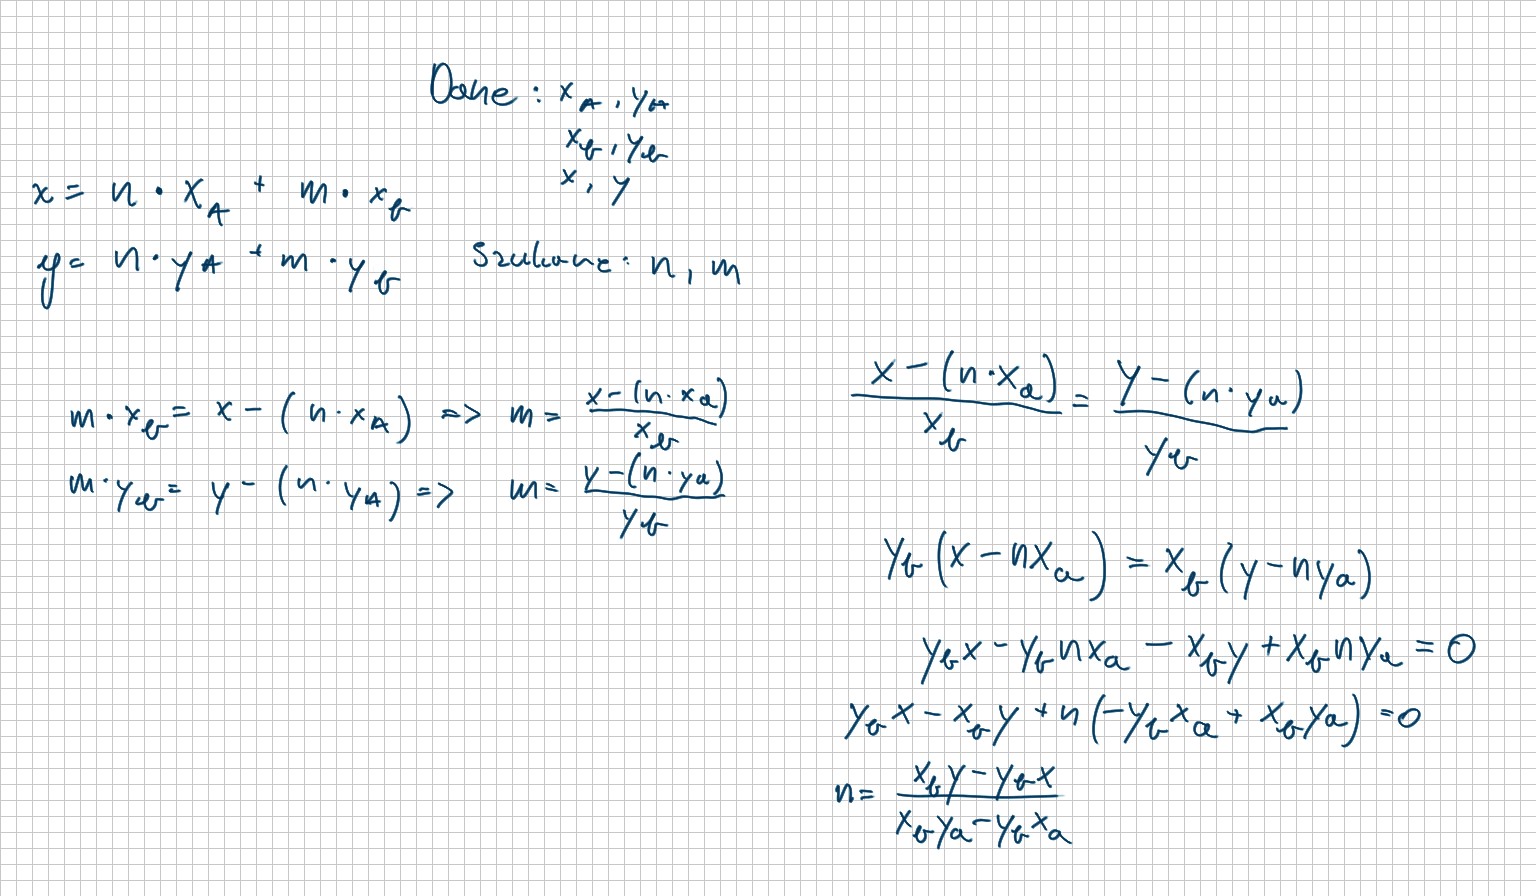 Dane : x_A , y_A
x_b , y_b
x , y
x = n · x_A + m · x_b
y = n · y_A + m · y_b
Szukane : n , m
m · x_b = x - (n · x_A) => m = \frac{x - (n · x_a)}{x_b}
m · y_b = y - (n · y_A) => m = \frac{y - (n · y_a)}{y_b}
\frac{x - (n · x_a)}{x_b} = \frac{y - (n · y_a)}{y_b}
y_b (x - n x_a) = x_b (y - n y_a)
y_b x - y_b n x_a - x_b y + x_b n y_a = 0
y_b x - x_b y + n (-y_b x_a + x_b y_a) = 0
n = \frac{x_b y - y_b x}{x_b y_a - y_b x_a}